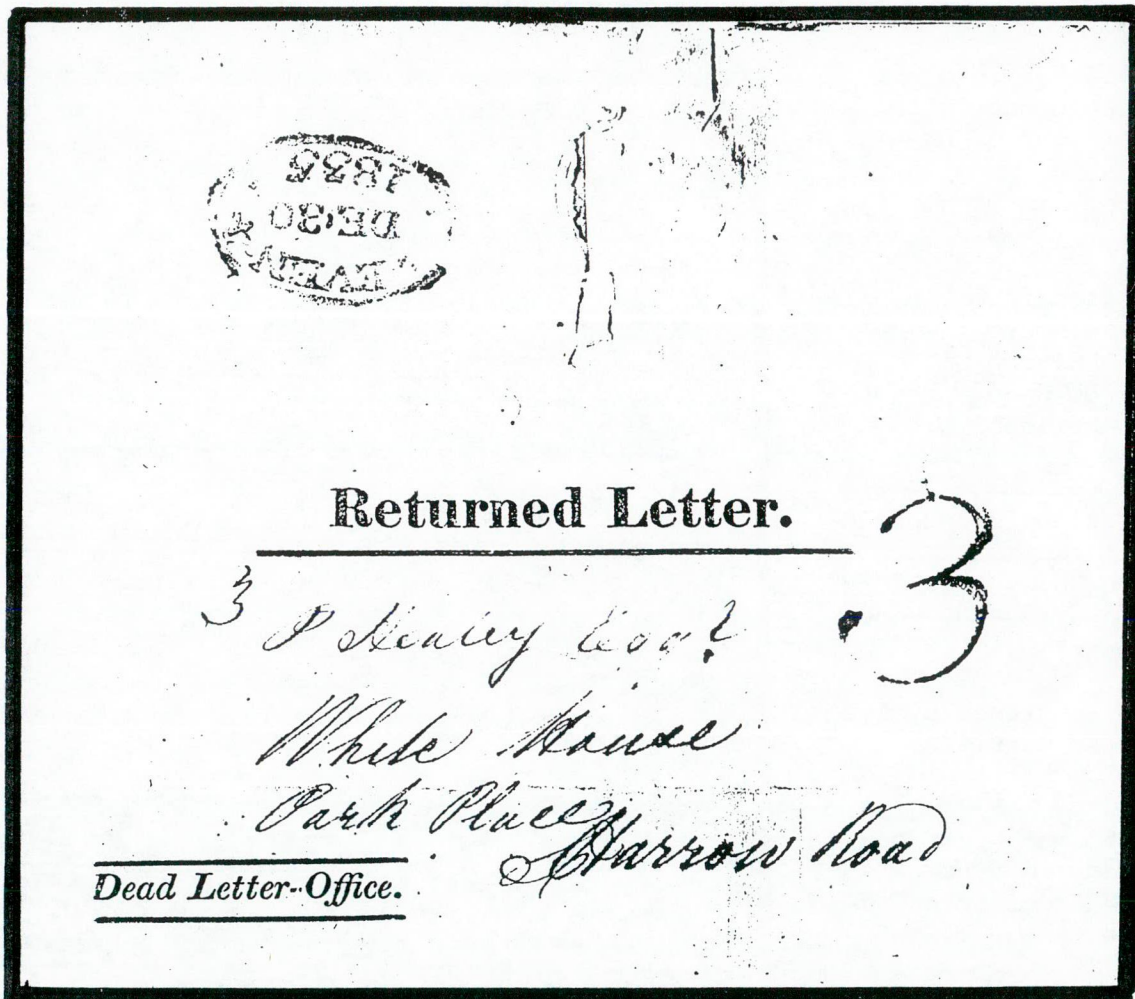 EVEN
DE·30
1835
Returned Letter.
3
3
P Healey Esqr
White House
Park Place
Harrow Road
Dead Letter-Office.